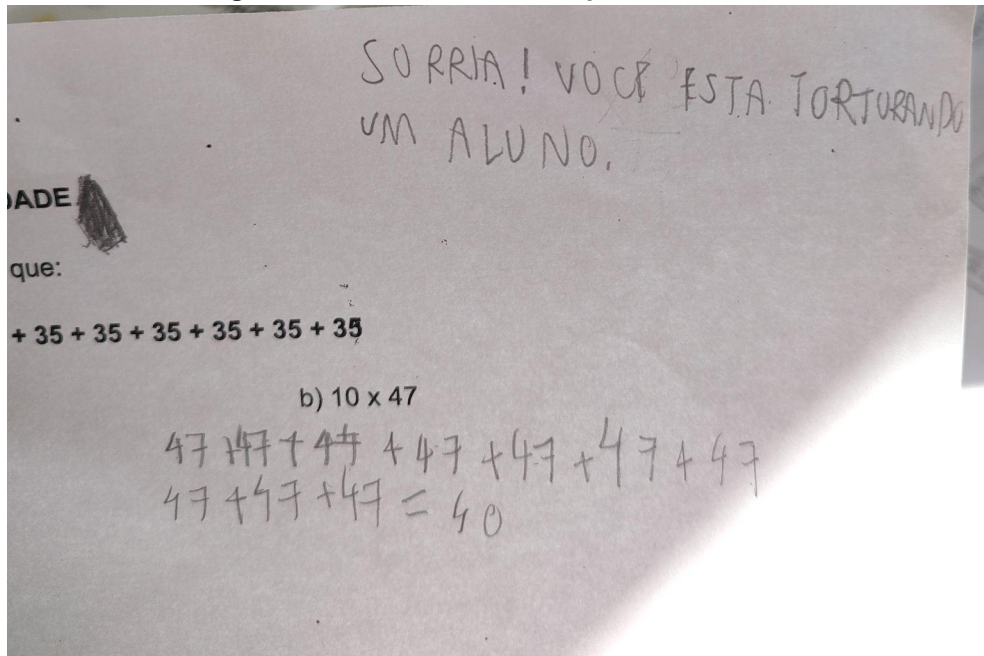 SORRIA! VOCÊ ESTA TORTURANDO
UM ALUNO.
DADE
que:
+ 35 + 35 + 35 + 35 + 35 + 35
b) 10 x 47
47 +47 + 47 + 47 + 47 + 47 + 47
47 + 47 + 47 = 40